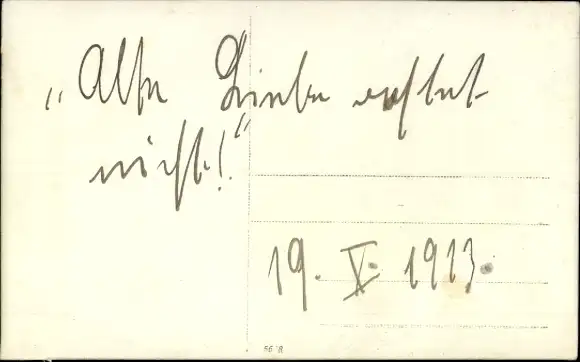 „Alte Liebe rostet
nicht!"
19. V. 1913.